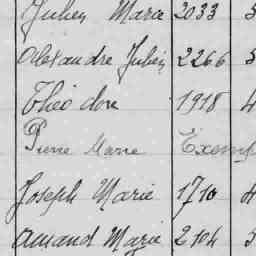 Julien Marie 2033 5
Alexandre Julien 2266 5
Théodore 1918 4
Pierre Marie Exemp
Joseph Marie 1710 4
Amand Marie 2104 5